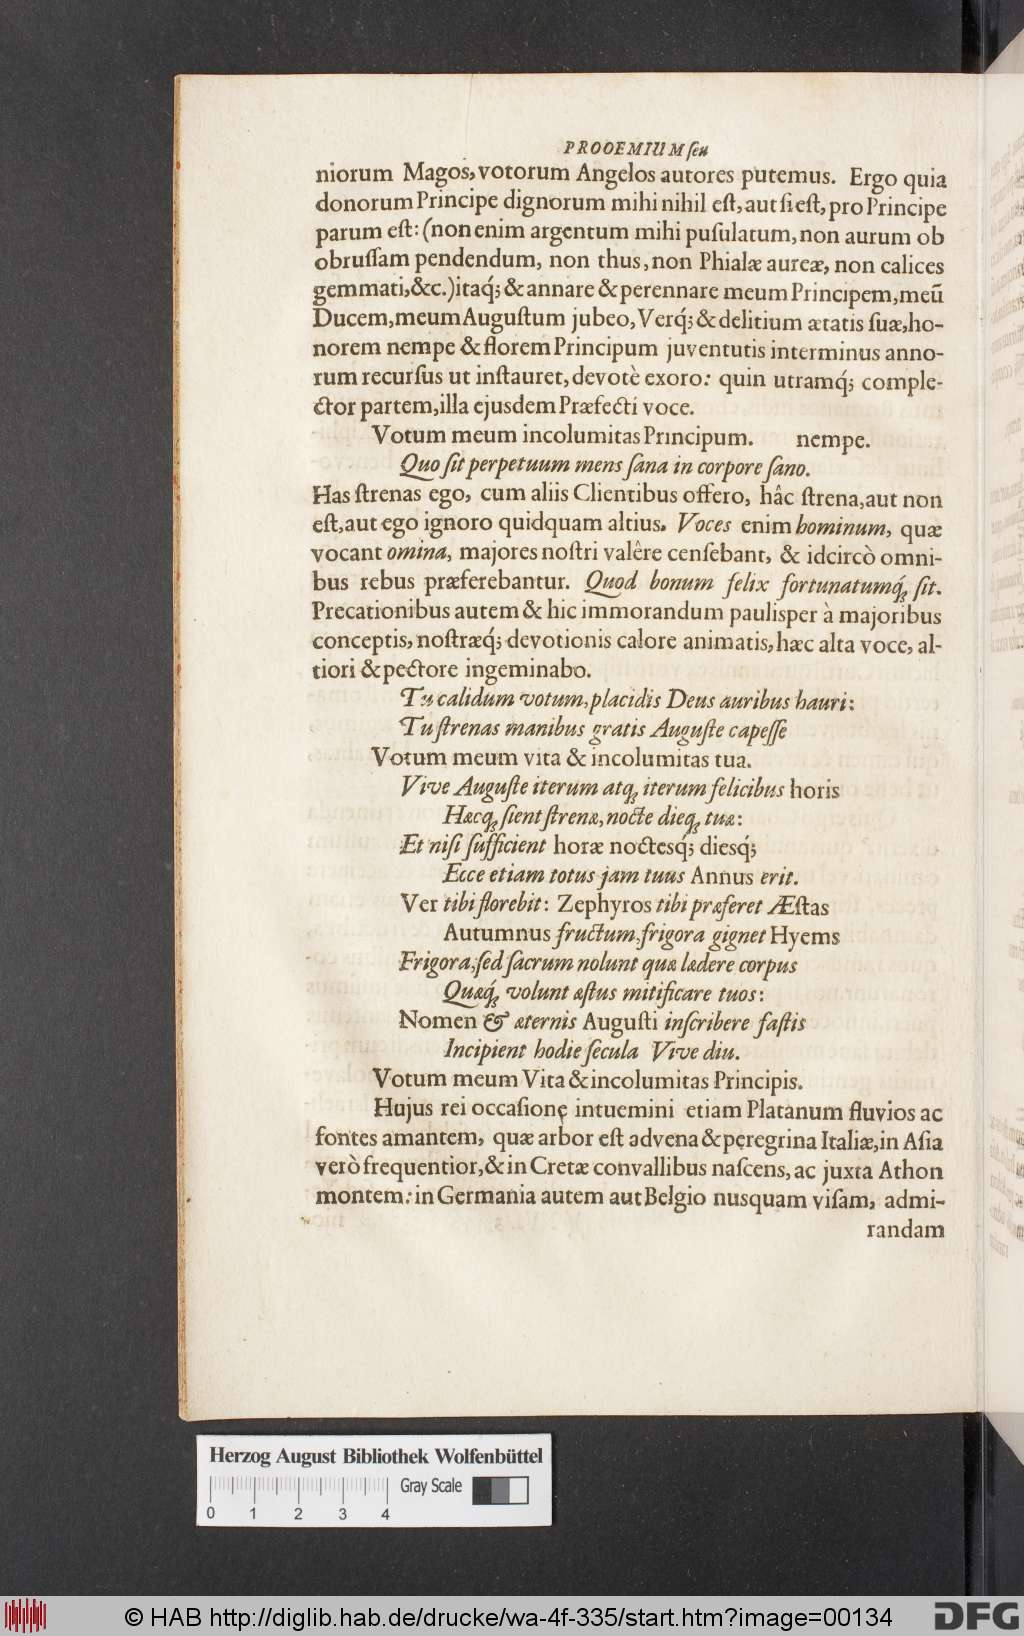 PROOEMIUM ſeu
niorum Magos, votorum Angelos autores putemus. Ergo quia
donorum Principe dignorum mihi nihil eſt, aut ſi eſt, pro Principe
parum eſt: (non enim argentum mihi puſulatum, non aurum ob
obruſſam pendendum, non thus, non Phialæ aureæ, non calices
gemmati, &c.) itaq́; & annare & perennare meum Principem, meū
Ducem, meum Auguſtum jubeo, Verq́; & delitium ætatis ſuæ, ho-
norem nempe & florem Principum juventutis interminus anno-
rum recurſus ut inſtauret, devotè exoro: quin utramq́; comple-
ctor partem, illa ejusdem Præfecti voce.
Votum meum incolumitas Principum. nempe.
Quo ſit perpetuum mens ſana in corpore ſano.
Has ſtrenas ego, cum aliis Clientibus offero, hâc ſtrena, aut non
eſt, aut ego ignoro quidquam altius. Voces enim hominum, quæ
vocant omina, majores noſtri valêre cenſebant, & idcircò omni-
bus rebus præferebantur. Quod bonum felix fortunatumq́; ſit.
Precationibus autem & hic immorandum paulisper à majoribus
conceptis, noſtræq́; devotionis calore animatis, hæc alta voce, al-
tiori & pectore ingeminabo.
Tu calidum votum, placidis Deus auribus hauri:
Tu ſtrenas manibus gratis Auguſte capeſſe
Votum meum vita & incolumitas tua.
Vive Auguſte iterum atq; iterum felicibus horis
Hæcq; ſient ſtrenæ, nocte dieq; tuæ:
Et niſi ſufficient horæ noctesq́; diesq́;
Ecce etiam totus jam tuus Annus erit.
Ver tibi florebit: Zephyros tibi præferet Æſtas
Autumnus fructum, frigora gignet Hyems
Frigora, ſed ſacrum nolunt quæ lædere corpus
Quæq́; volunt æſtus mitificare tuos:
Nomen & æternis Auguſti inſcribere faſtis
Incipient hodie ſecula Vive diu.
Votum meum Vita & incolumitas Principis.
Hujus rei occaſione intuemini etiam Platanum fluvios ac
fontes amantem, quæ arbor eſt advena & peregrina Italiæ, in Aſia
verò frequentior, & in Cretæ convallibus naſcens, ac juxta Athon
montem: in Germania autem aut Belgio nusquam viſam, admi-
randam
Herzog August Bibliothek Wolfenbüttel
Gray Scale
0 1 2 3 4
© HAB http://diglib.hab.de/drucke/wa-4f-335/start.htm?image=00134
DFG